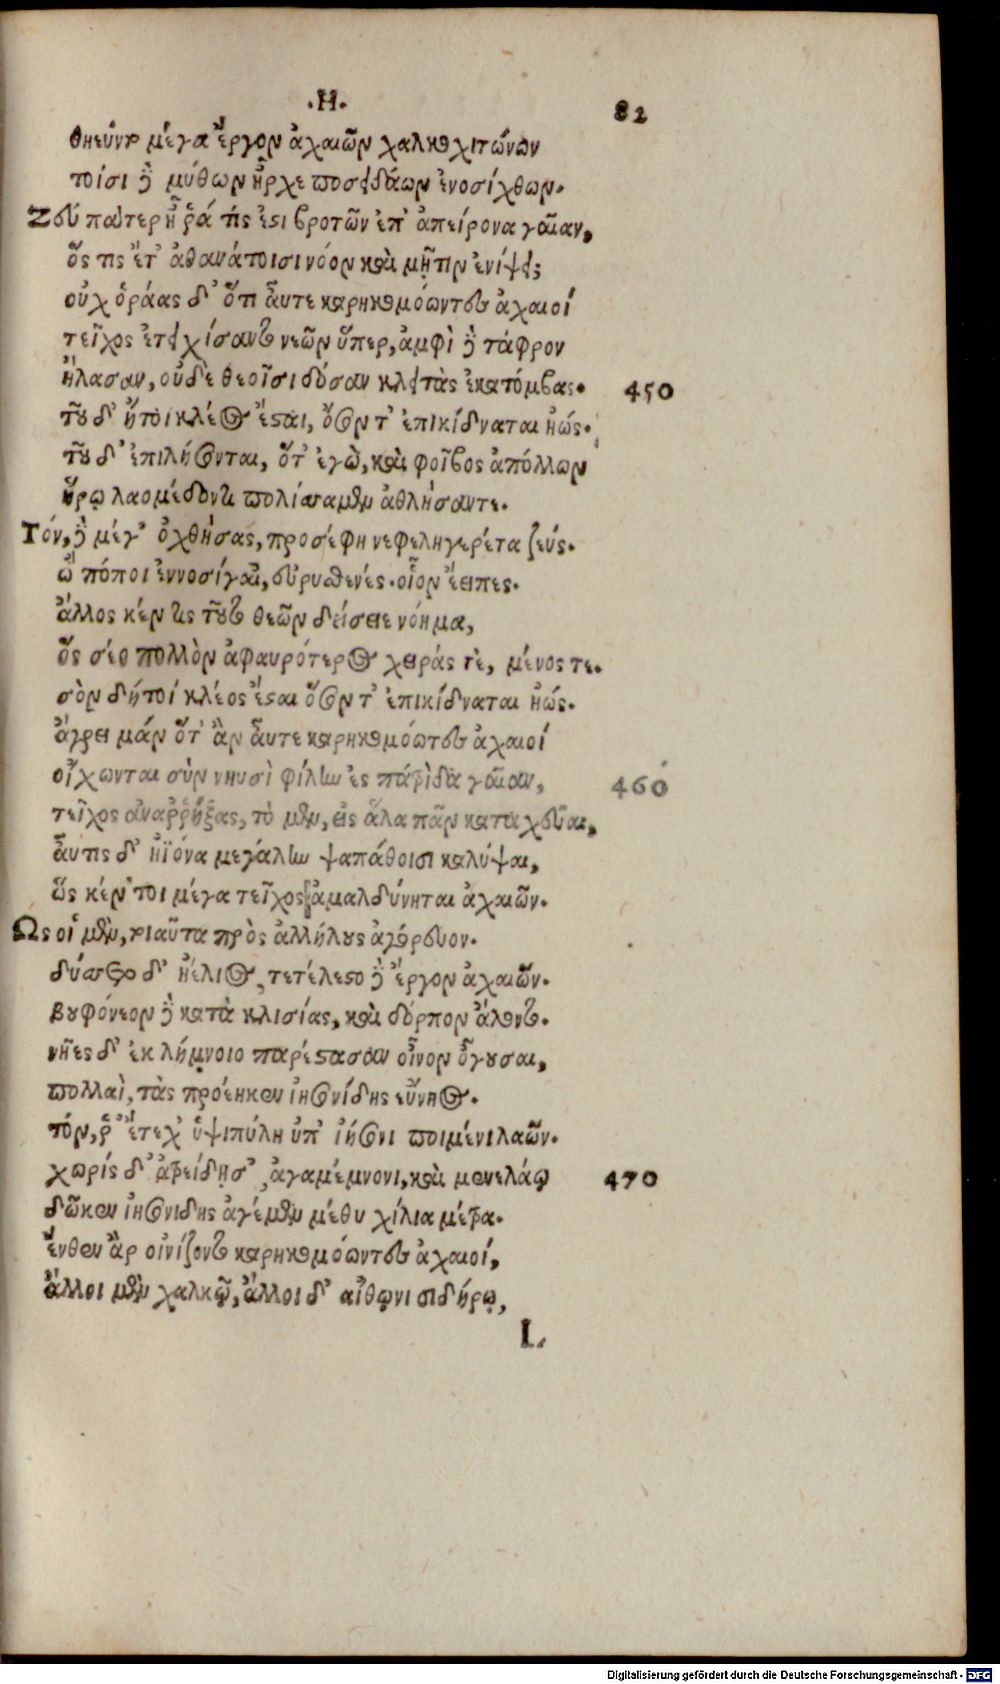 .Η.
82
θηεῦντο μέγα ἔργον ἀχαιῶν χαλκοχιτώνων
τοίσι δὲ μύθων ἦρχε ποσειδάων ἐνοσίχθων.
Ζεύ πάτερ ἦ ῥά τίς ἐστι βροτῶν ἐπ' ἀπείρονα γαῖαν,
ὅς τις ἔτ' ἀθανάτοισι νόον καὶ μῆτιν ἐνίψει;
οὐχ ὁράας δ' ὅτι αὖτε καρηκομόωντες ἀχαιοί
τεῖχος ἐτειχίσαντο νεῶν ὕπερ, ἀμφὶ δὲ τάφρον
ἤλασαν, οὐδὲ θεοῖσι δόσαν κλειτὰς ἑκατόμβας.
450
τοῦ δ' ἤτοι κλέος ἔσται, ὅσον τ' ἐπικίδναται ἠώς.
τοῦ δ' ἐπιλήσονται, ὅτ' ἐγὼ, καὶ φοῖβος ἀπόλλων
ἥρῳ λαομέδοντι πολίσσαμεν ἀθλήσαντε.
Τόν, δὲ μέγ' ὀχθήσας, προσέφη νεφεληγερέτα ζεύς.
ὢ πόποι ἐννοσίγαι, εὐρυσθενές. οἷον ἔειπες.
ἄλλος κέν τις τοῦτο θεῶν δείσειε νόημα,
ὃς σέο πολλὸν ἀφαυρότερος χειράς τὲ, μένος τε.
σὸν δήτοι κλέος ἔσται ὅσον τ' ἐπικίδναται ἠώς.
ἄγρει μάν ὅτ' ἂν αὖτε καρηκομόωτες ἀχαιοί
οἴχωνται σὺν νηυσὶ φίλην ἐς πατρίδα γαῖαν,
460
τεῖχος ἀναῤῥήξας, τὸ μὲν, εἰς ἅλα πᾶν καταχεῦαι,
αὖτις δ' ἠϊόνα μεγάλην ψαπάθοισι καλύψαι,
ὥς κέν τοι μέγα τεῖχος ἀμαλδύνηται ἀχαιῶν.
Ως οἱ μὲν, τοιαῦτα πρὸς ἀλλήλους ἀγόρευον.
δύσετο δ' ἠέλιος, τετέλεστο δὲ ἔργον ἀχαιῶν.
βουφόνεον δὲ κατὰ κλισίας, καὶ δόρπον ἕλοντο.
νῆες δ' ἐκ λήμνοιο παρέστασαν οἶνον ἄγουσαι,
πολλαὶ, τὰς προέηκεν ἰησονίδης εὔνηος.
τόν, ῥ' ἔτεχ' ὑψιπύλη ὑπ' ἰήσονι ποιμένι λαῶν.
χωρίς δ' ἀτρείδῃσ', ἀγαμέμνονι, καὶ μενελάῳ
470
δῶκεν ἰησονιδης ἀγέμεν μέθυ χίλια μέτρα.
ἔνθεν ἂρ οἰνίζοντο καρηκομόωντες ἀχαιοί,
ἄλλοι μὲν χαλκῷ, ἄλλοι δ' αἴθωνι σιδήρῳ,
L
Digitalisierung gefördert durch die Deutsche Forschungsgemeinschaft - DFG